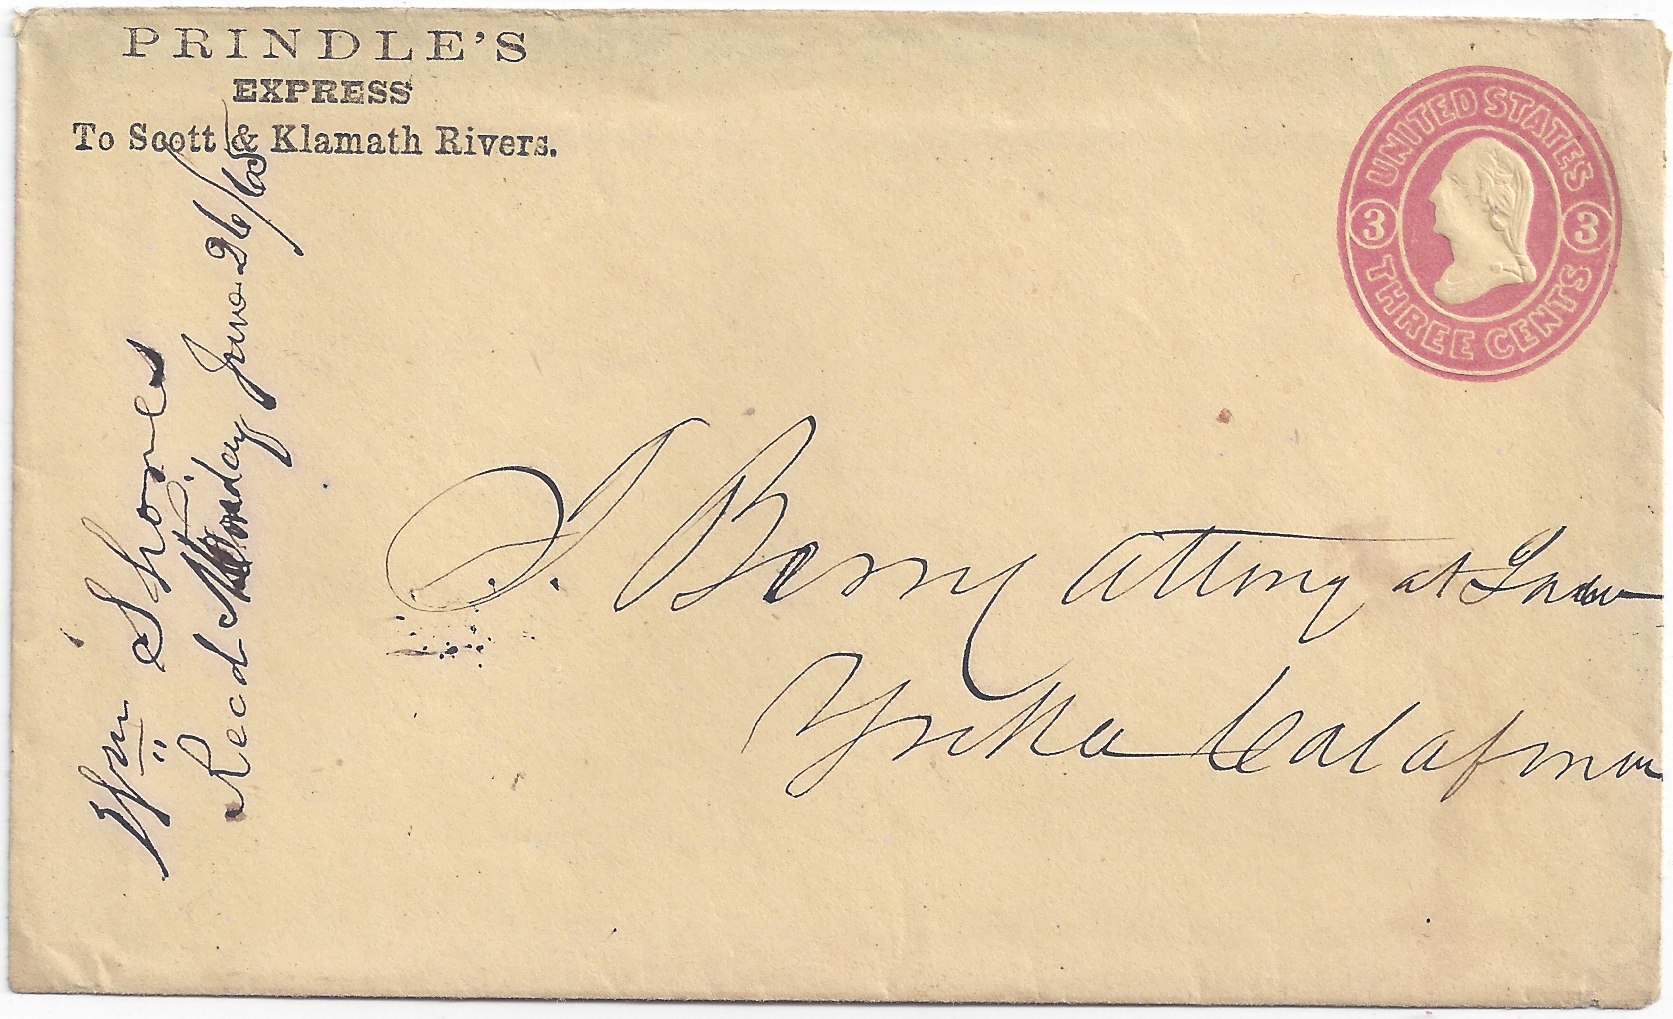 PRINDLE'S
EXPRESS
To Scott & Klamath Rivers.
UNITED STATES
3 3
THREE CENTS
Wm Shores
Recd Monday June 26/65
J. Berry Attorny at Law
Yreka